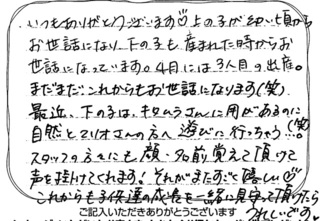 いつもありがとうございます♡上の子が幼い頃から
お世話になり、下の子も産まれた時からお
世話になっています。4月には3人目の出産。
まだまだこれからもお世話になります(笑)
最近、下の子は、キタムラさんに用があるのに
自然とマリオさんの方へ遊びに行っちゃう…(笑)
スタッフの方々にも顔・名前覚えて頂けて
声を掛けてくれます!それがまたすごく嬉しい♡
これからも子供達の成長を一緒に見守って頂けたら
うれしいです。
ご記入いただきありがとうございます